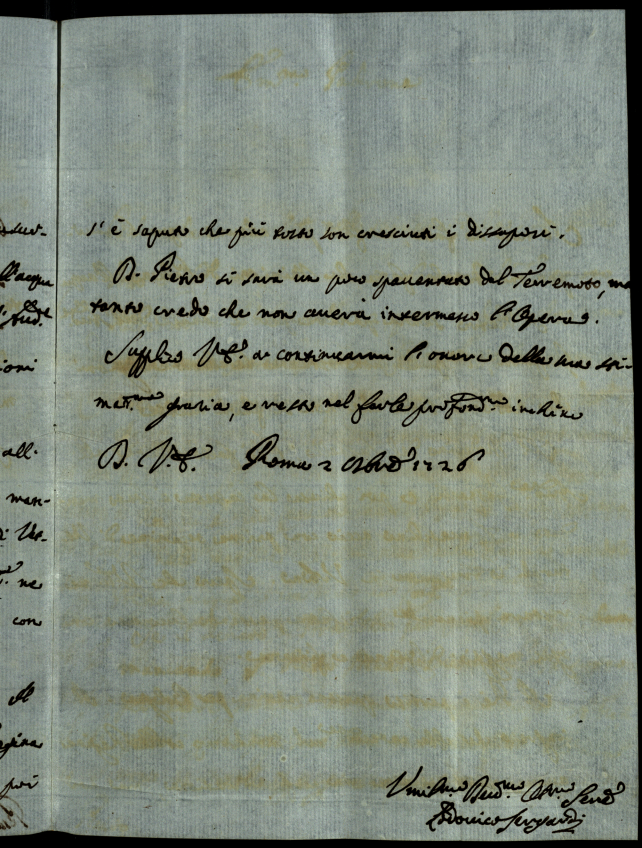 s'è saputo che più tosto son cresciuti i dissapori.
D. Pietro si sarà un poco spaventato del Terremoto, ma
tanto credo che non averà intermesso l'Opera.
Supplico V.E. a continuarmi l'onore della sua sti-
mat.ma grazia, e resto nel farle profond.mo inchino
D. V.E. Roma 2 1726
Umil.mo Dev.mo Obl.mo Serv.
Lodovico Sergardi
all.
man-
ne
con
più